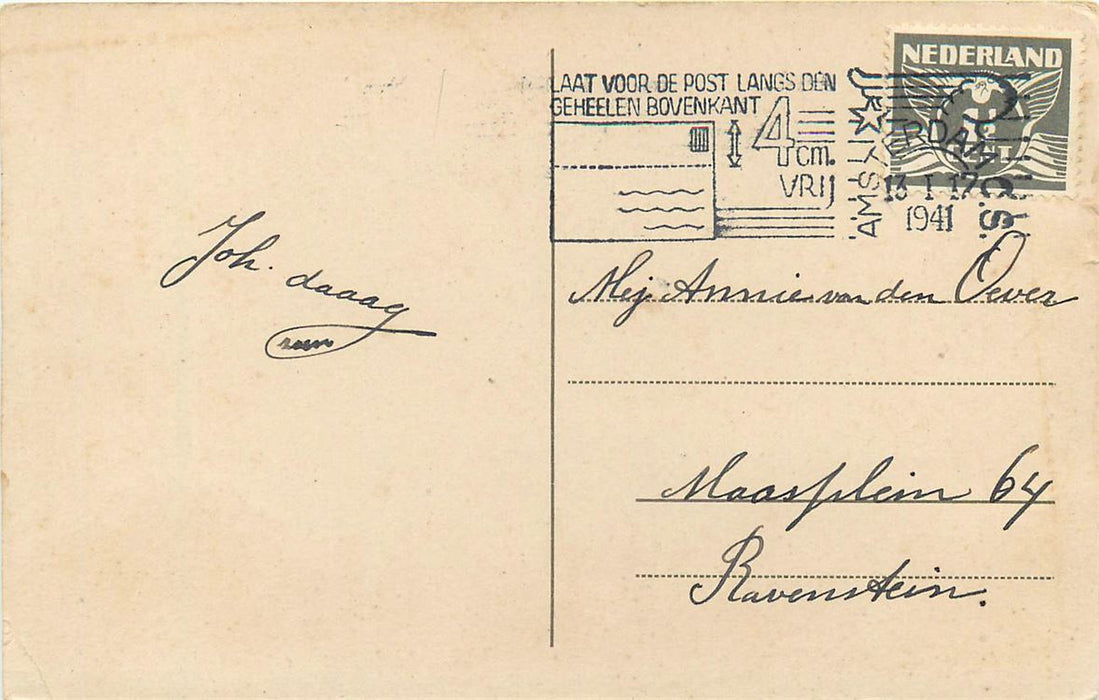 LAAT VOOR DE POST LANGS DEN
GEHEELEN BOVENKANT
4 cm.
VRIJ
AMSTERDAM
13 I 17
1941
NEDERLAND
Joh. daaag
Mej Annie van den Oever
Maasplein 64
Ravenstein.